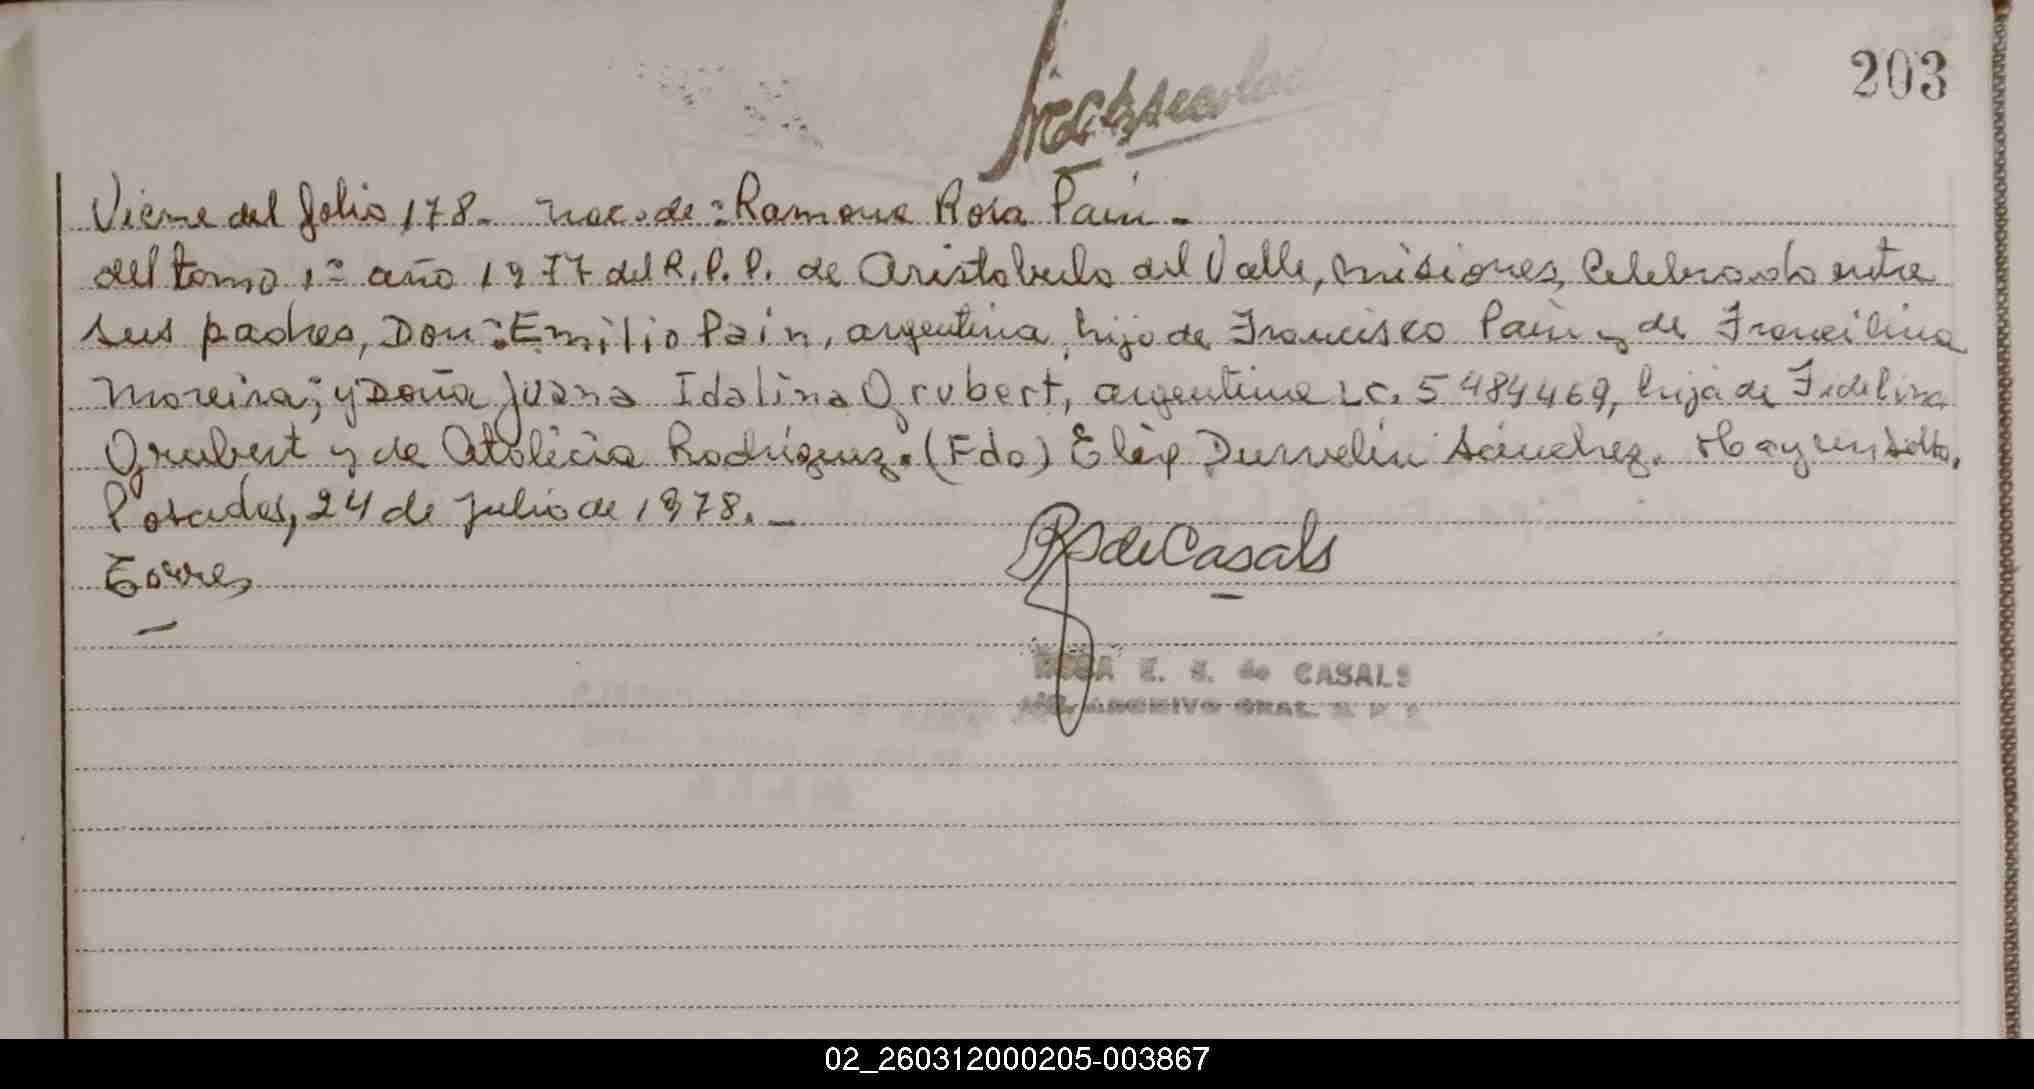 203
Viene del folio 178.- nac. de: Ramona Rosa Pain.-
del tomo 1º año 1977 del R.P.P. de Aristobulo del Valle, Misiones, Celebrado entre
sus padres, Don: Emilio Pain, argentino, hijo de Francisco Pain y de Francilina
Moreira; y Doña Juana Idalina Grubert, argentina L.C. 5484469, hija de Fidelina
Grubert y de Rodríguez. (Fdo) Durvelin Sánchez. Hay un sello.
Posadas, 24 de Julio de 1978.-
Torres
de Casals
E. S. de CASALS
ARCHIVO GRAL.
02_260312000205-003867